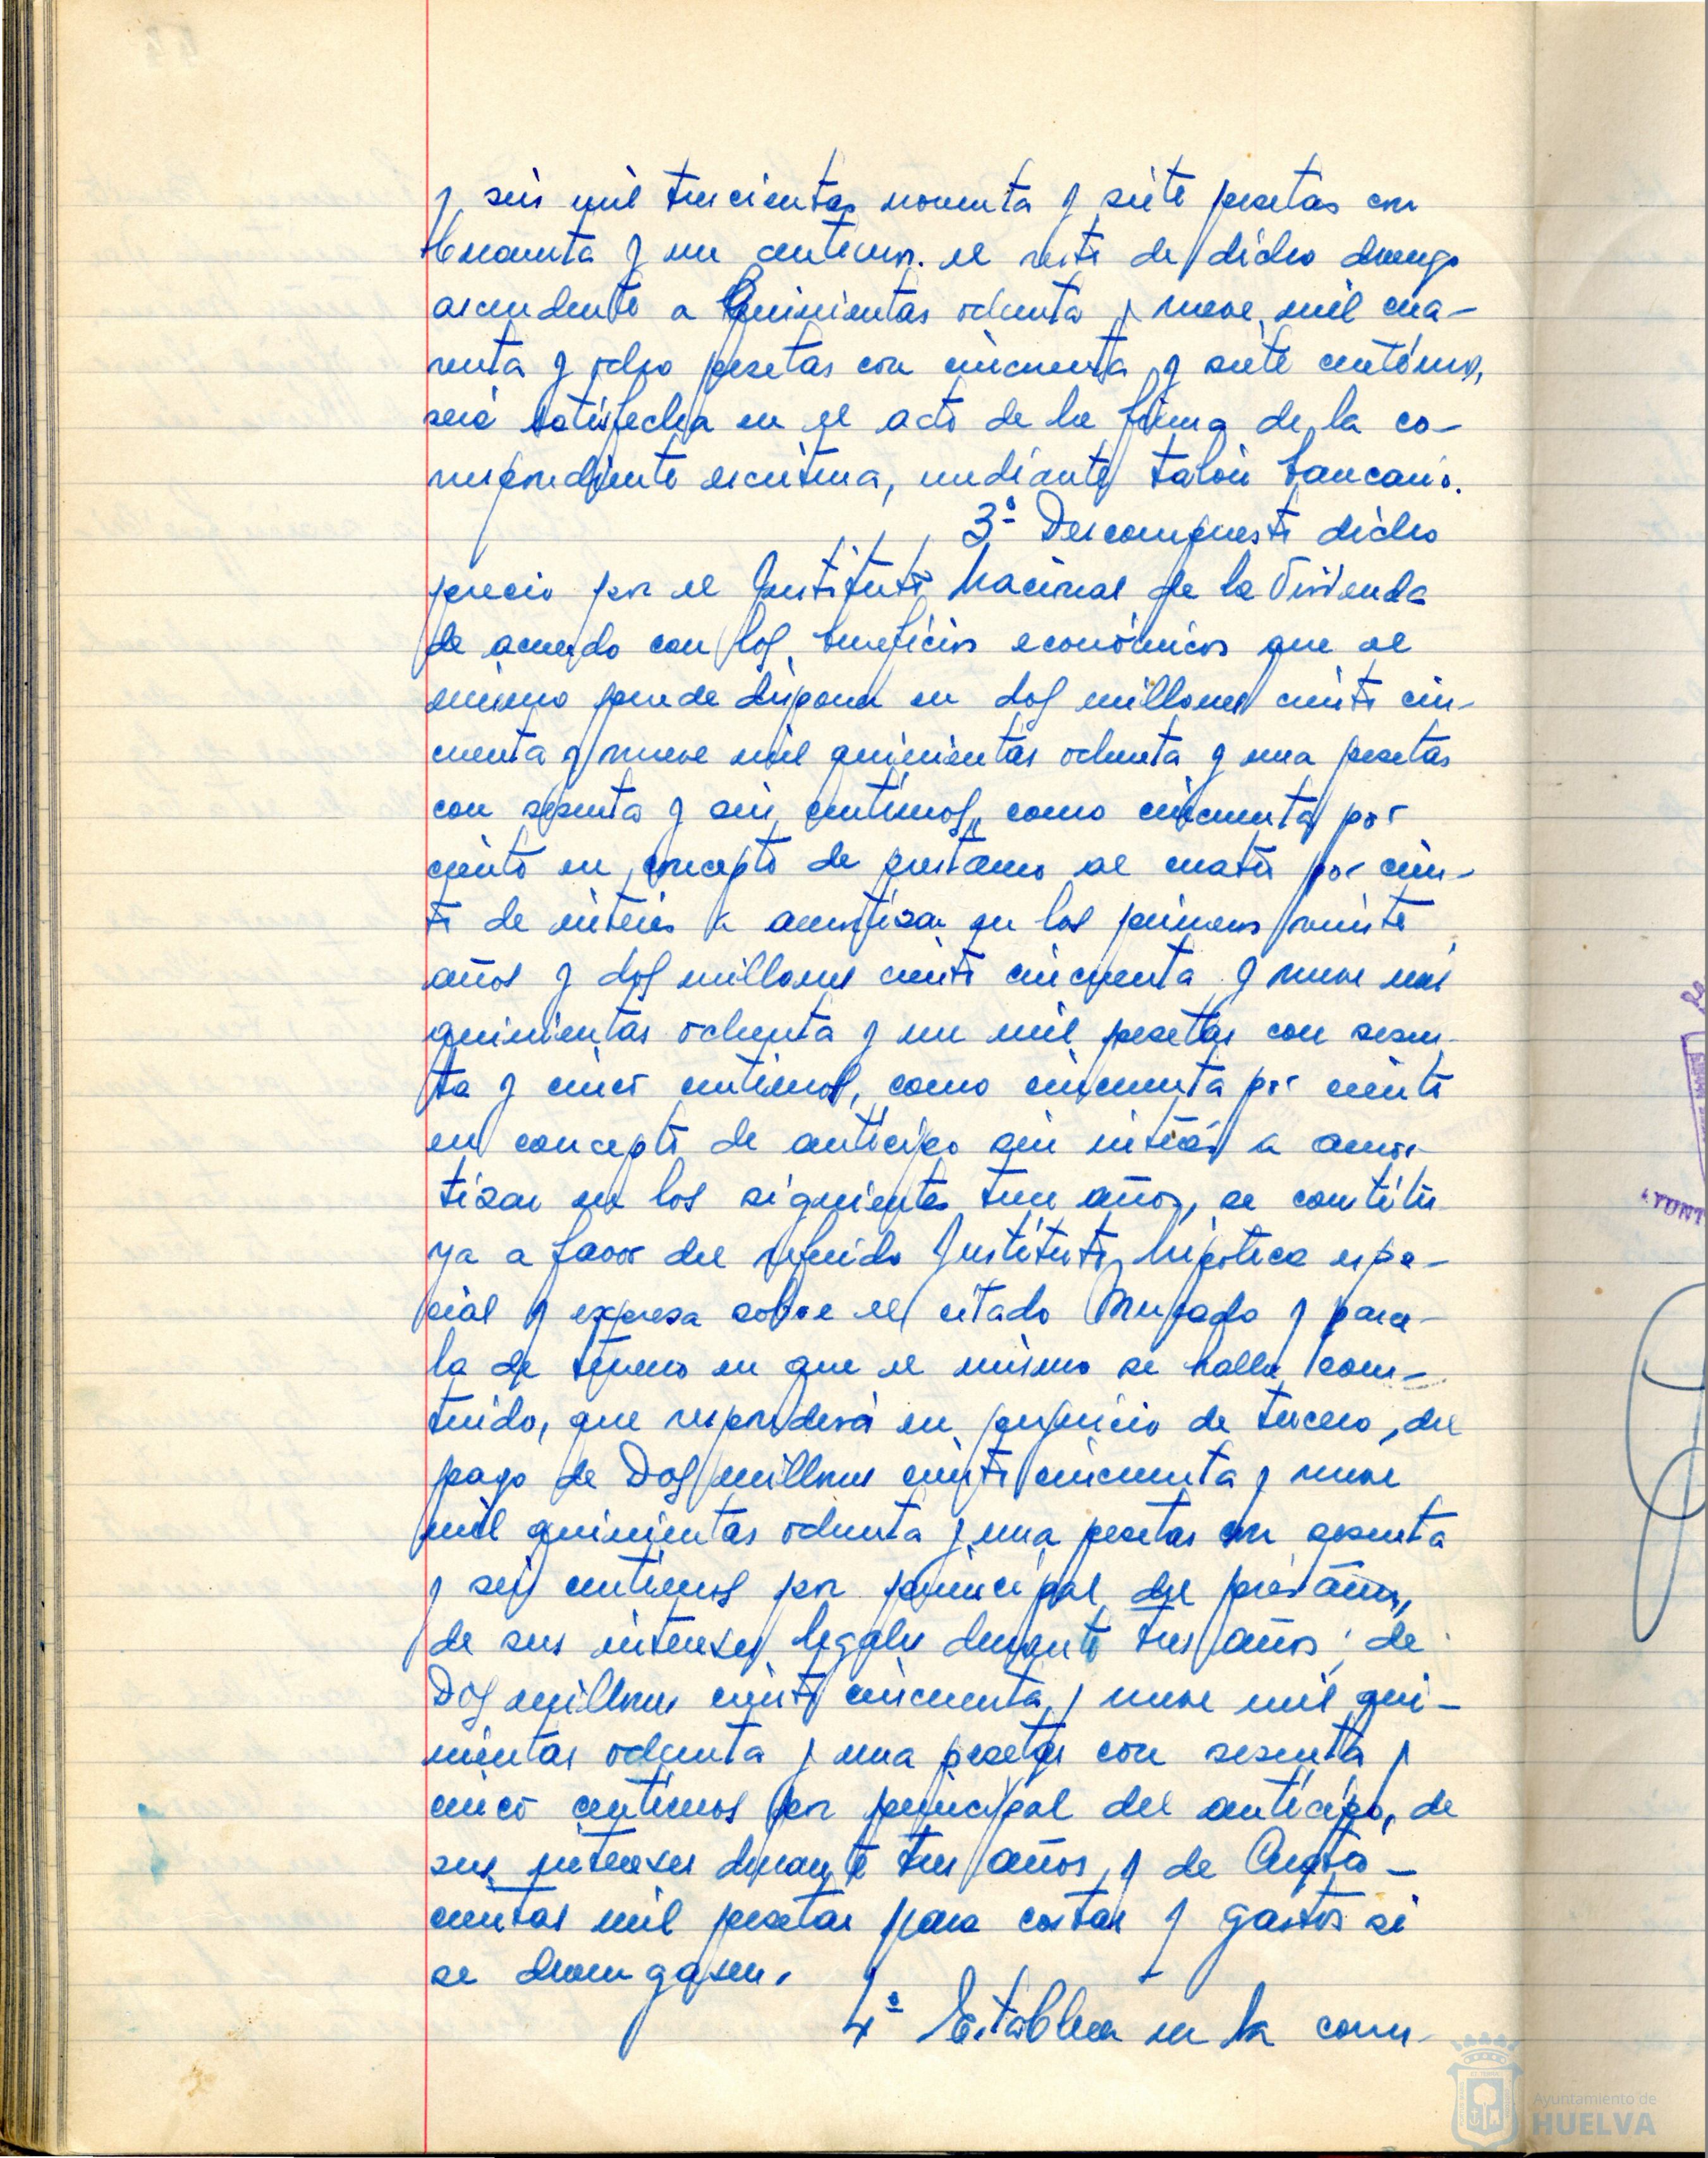 y seis mil trescientas noventa y siete pesetas con
cincuenta y un centimos. el resto de dicho devengo
ascendente a Quinientas ochenta y nueve mil cua-
renta y ocho pesetas con cincuenta y siete centimos,
será satisfecha en el acto de la firma de la co-
rrespondiente escritura, mediante talón bancario.
3º Descompuesto dicho
precio por el Instituto Nacional de la Vivienda
de acuerdo con los beneficios económicos que el
mismo puede disponer en dos millones ciento cin-
cuenta y nueve mil quinientas ochenta y una pesetas
con sesenta y seis centimos, como cincuenta por
ciento en concepto de prestamo al cuatro por cien-
to de interés a amortizar en los primeros veinte
años y dos millones ciento cincuenta y nueve mil
quinientas ochenta y un mil pesetas con sesen-
ta y cinco centimos, como cincuenta por ciento
en concepto de anticipo sin interés a amor-
tizar en los siguientes tres años, se constitu-
ya a favor del referido Instituto, hipoteca espe-
cial y expresa sobre el citado Mercado y parce-
la de terreno en que el mismo se halla cons-
truido, que responderá en perjuicio de tercero, del
pago de Dos millones ciento cincuenta y nueve
mil quinientas ochenta y una pesetas con sesenta
y seis centimos por principal del préstamo,
de sus intereses legales durante tres años; de
Dos millones ciento cincuenta y nueve mil qui-
nientas ochenta y una pesetas con sesenta y
cinco centimos por principal del anticipo, de
sus intereses durante tres años, y de Cuatro-
cientas mil pesetas para costas y gastos si
se devengasen.
4º Establecer en la corres-
Ayuntamiento de
HUELVA